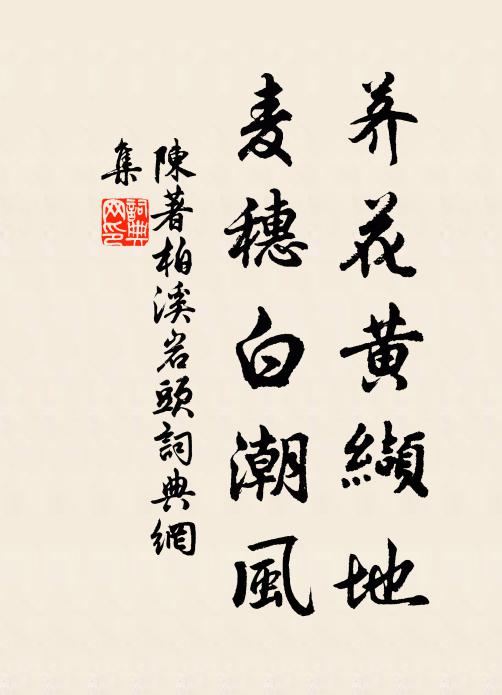 荠花黄纈地
麦穗白潮風
陳著柏溪岩頭詞典網
集
詞典网印